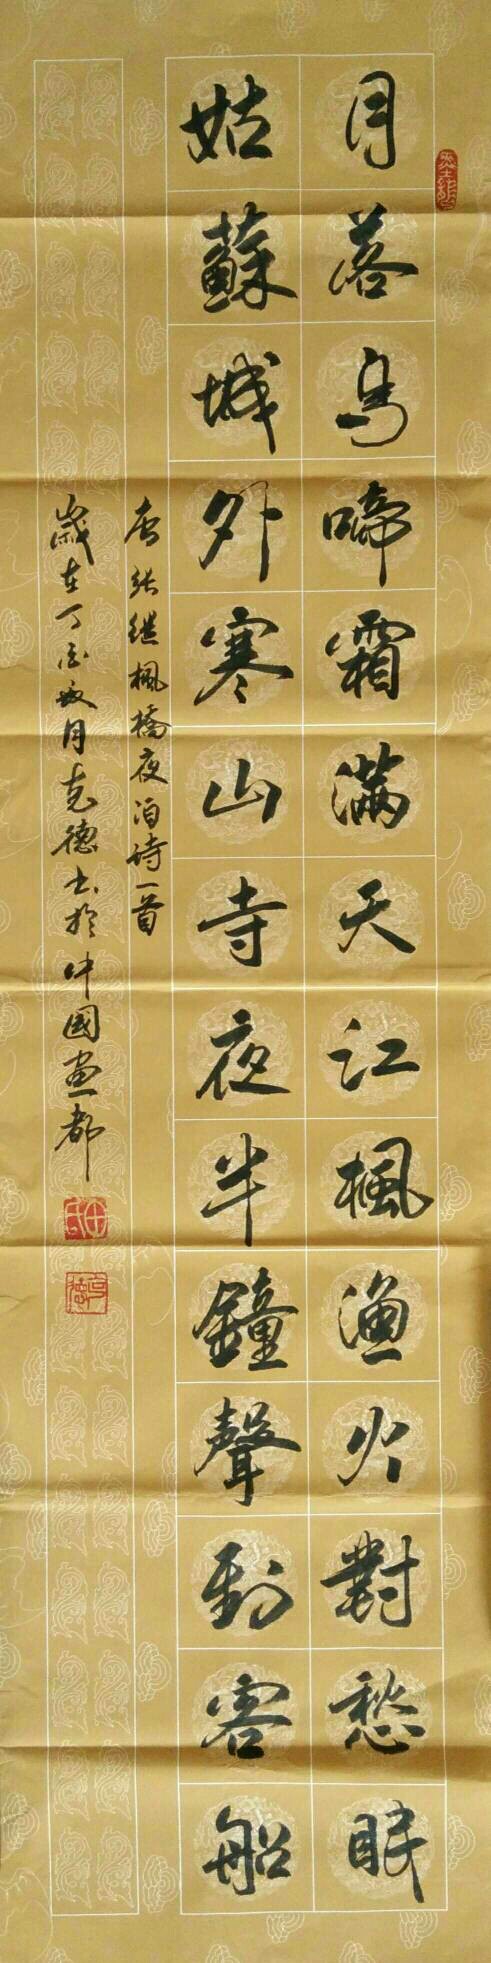 月落烏啼霜滿天江楓漁火對愁眠
姑蘇城外寒山寺夜半鐘聲到客船
唐張繼楓橋夜泊詩一首
歲在丁酉秋月克德书於中國畫都